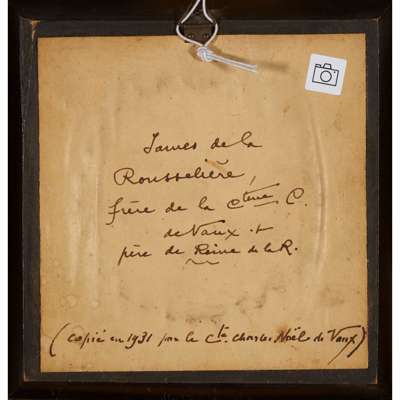 James de la
Rousselière,
frère de la Ctesse C.
de Vaux +
père de Reine de la R.
(Copié en 1931 par le Cte. Charles Noël de Vaux)